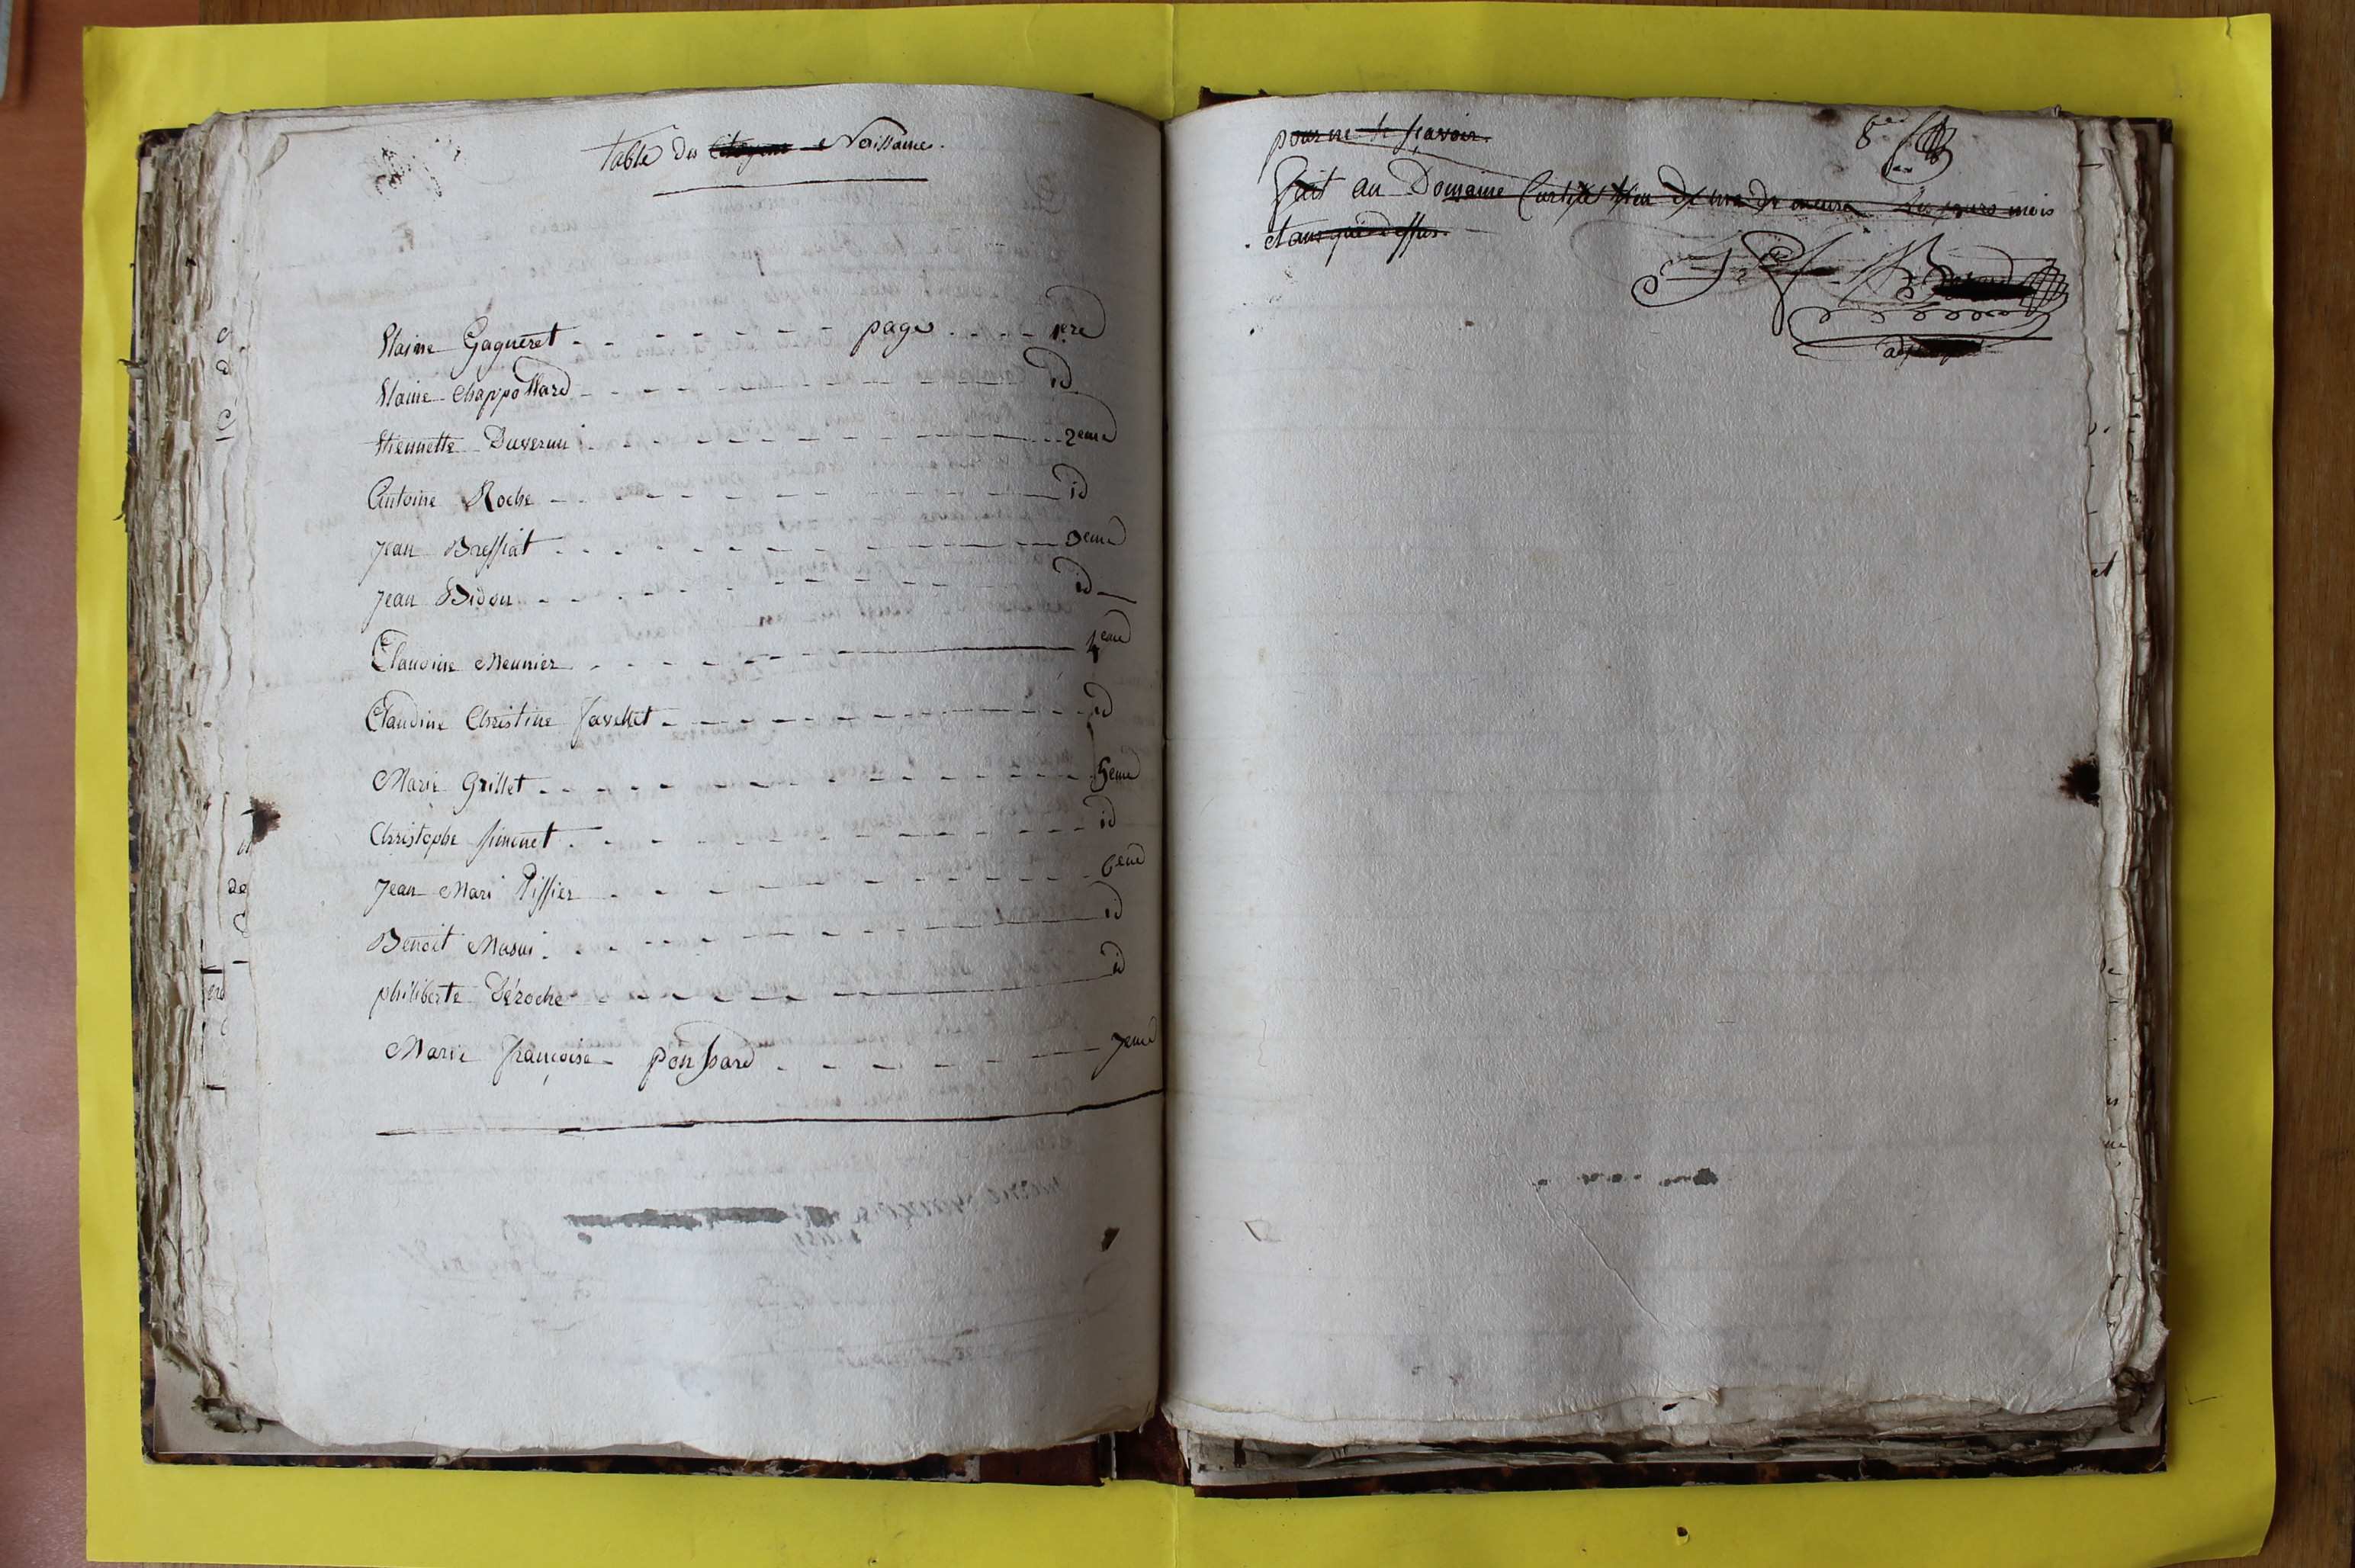 table des Citoyens Naissances.
Blaise Gagneret - - - - - - page - - - 1ere
Blaise Chappottard - - - - - - id
Etiennette Duvernai - - - - - - 2eme
Antoine Roche - - - - - - id
Jean Bressiat - - - - - - 3eme
Jean Bidon - - - - - - id
Claudine Meunier - - - - - - 4eme
Claudine Christine Javellet - - - - - - id
Marie Grillet - - - - - - 5eme
Christophe Simonet - - - - - - id
Jean Mari Tissier - - - - - - 6eme
Benoit Masui - - - - - - id
philiberte Déroche - - - - - - id
Marie françoise ponssard - - - - - - 7eme
8e
pour ne le sçavoir.
fait au Domaine lieu de ma demeure les jours mois
et ans que dessus.